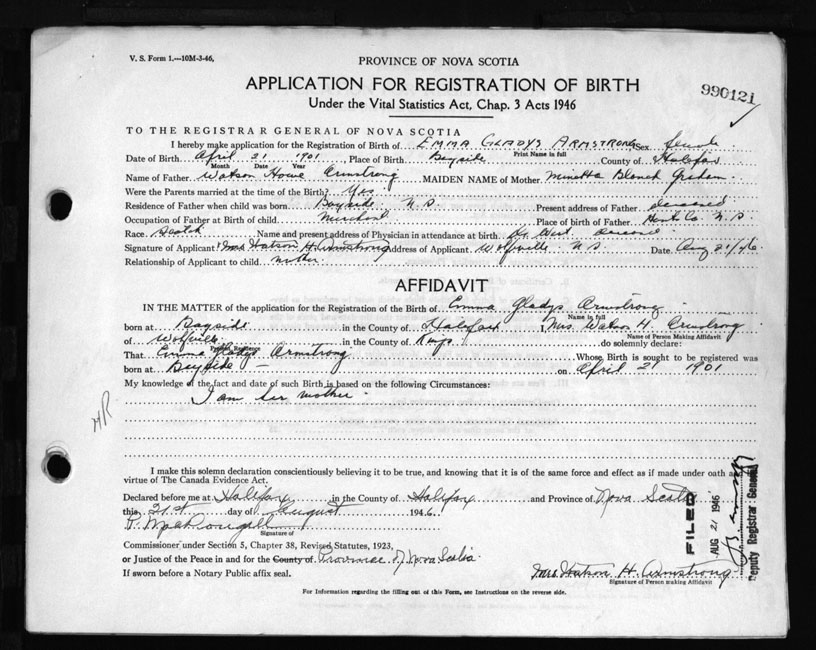 V. S. Form 1.—10M-3-46,
PROVINCE OF NOVA SCOTIA
APPLICATION FOR REGISTRATION OF BIRTH
990121
Under the Vital Statistics Act, Chap. 3 Acts 1946
TO THE REGISTRAR GENERAL OF NOVA SCOTIA
I hereby make application for the Registration of Birth of EMMA GLADYS ARMSTRONG Sex female
Print Name in full
Date of Birth April 21 1901, Place of Birth Bayside County of Halifax
Month Date Year
Name of Father Watson Howe Armstrong MAIDEN NAME of Mother Minetta Blanch Graham
Were the Parents married at the time of the Birth? Yes
Residence of Father when child was born Bayside N.S. Present address of Father deceased
Occupation of Father at Birth of child Merchant Place of birth of Father Hants Co. N.S.
Race Scotch Name and present address of Physician in attendance at birth Dr. West deceased
Signature of Applicant Mrs Watson H. Armstrong address of Applicant Wolfville N.S. Date Aug 21/46
Relationship of Applicant to child mother
AFFIDAVIT
IN THE MATTER of the application for the Registration of the Birth of Emma Gladys Armstrong
Name in full
born at Bayside in the County of Halifax I, Mrs. Watson H. Armstrong
Name of Person Making Affidavit
of Wolfville in the County of Kings do solemnly declare:
Residence
That Emma Gladys Armstrong Whose Birth is sought to be registered was
born at Bayside — on April 21 1901
My knowledge of the fact and date of such Birth is based on the following Circumstances:
I am her mother
HR
I make this solemn declaration conscientiously believing it to be true, and knowing that it is of the same force and effect as if made under oath
virtue of The Canada Evidence Act.
Declared before me at Halifax in the County of Halifax and Province of Nova Scotia
this 21st day of August 1946
Signature of
Commissioner under Section 5, Chapter 38, Revised Statutes, 1923,
or Justice of the Peace in and for the County of Province of Nova Scotia
If sworn before a Notary Public affix seal.
Mrs Watson H. Armstrong
Signature of Person making Affidavit
For Information regarding the filling out of this Form, see Instructions on the reverse side.
FILED
AUG 21 1946
Deputy Registrar General